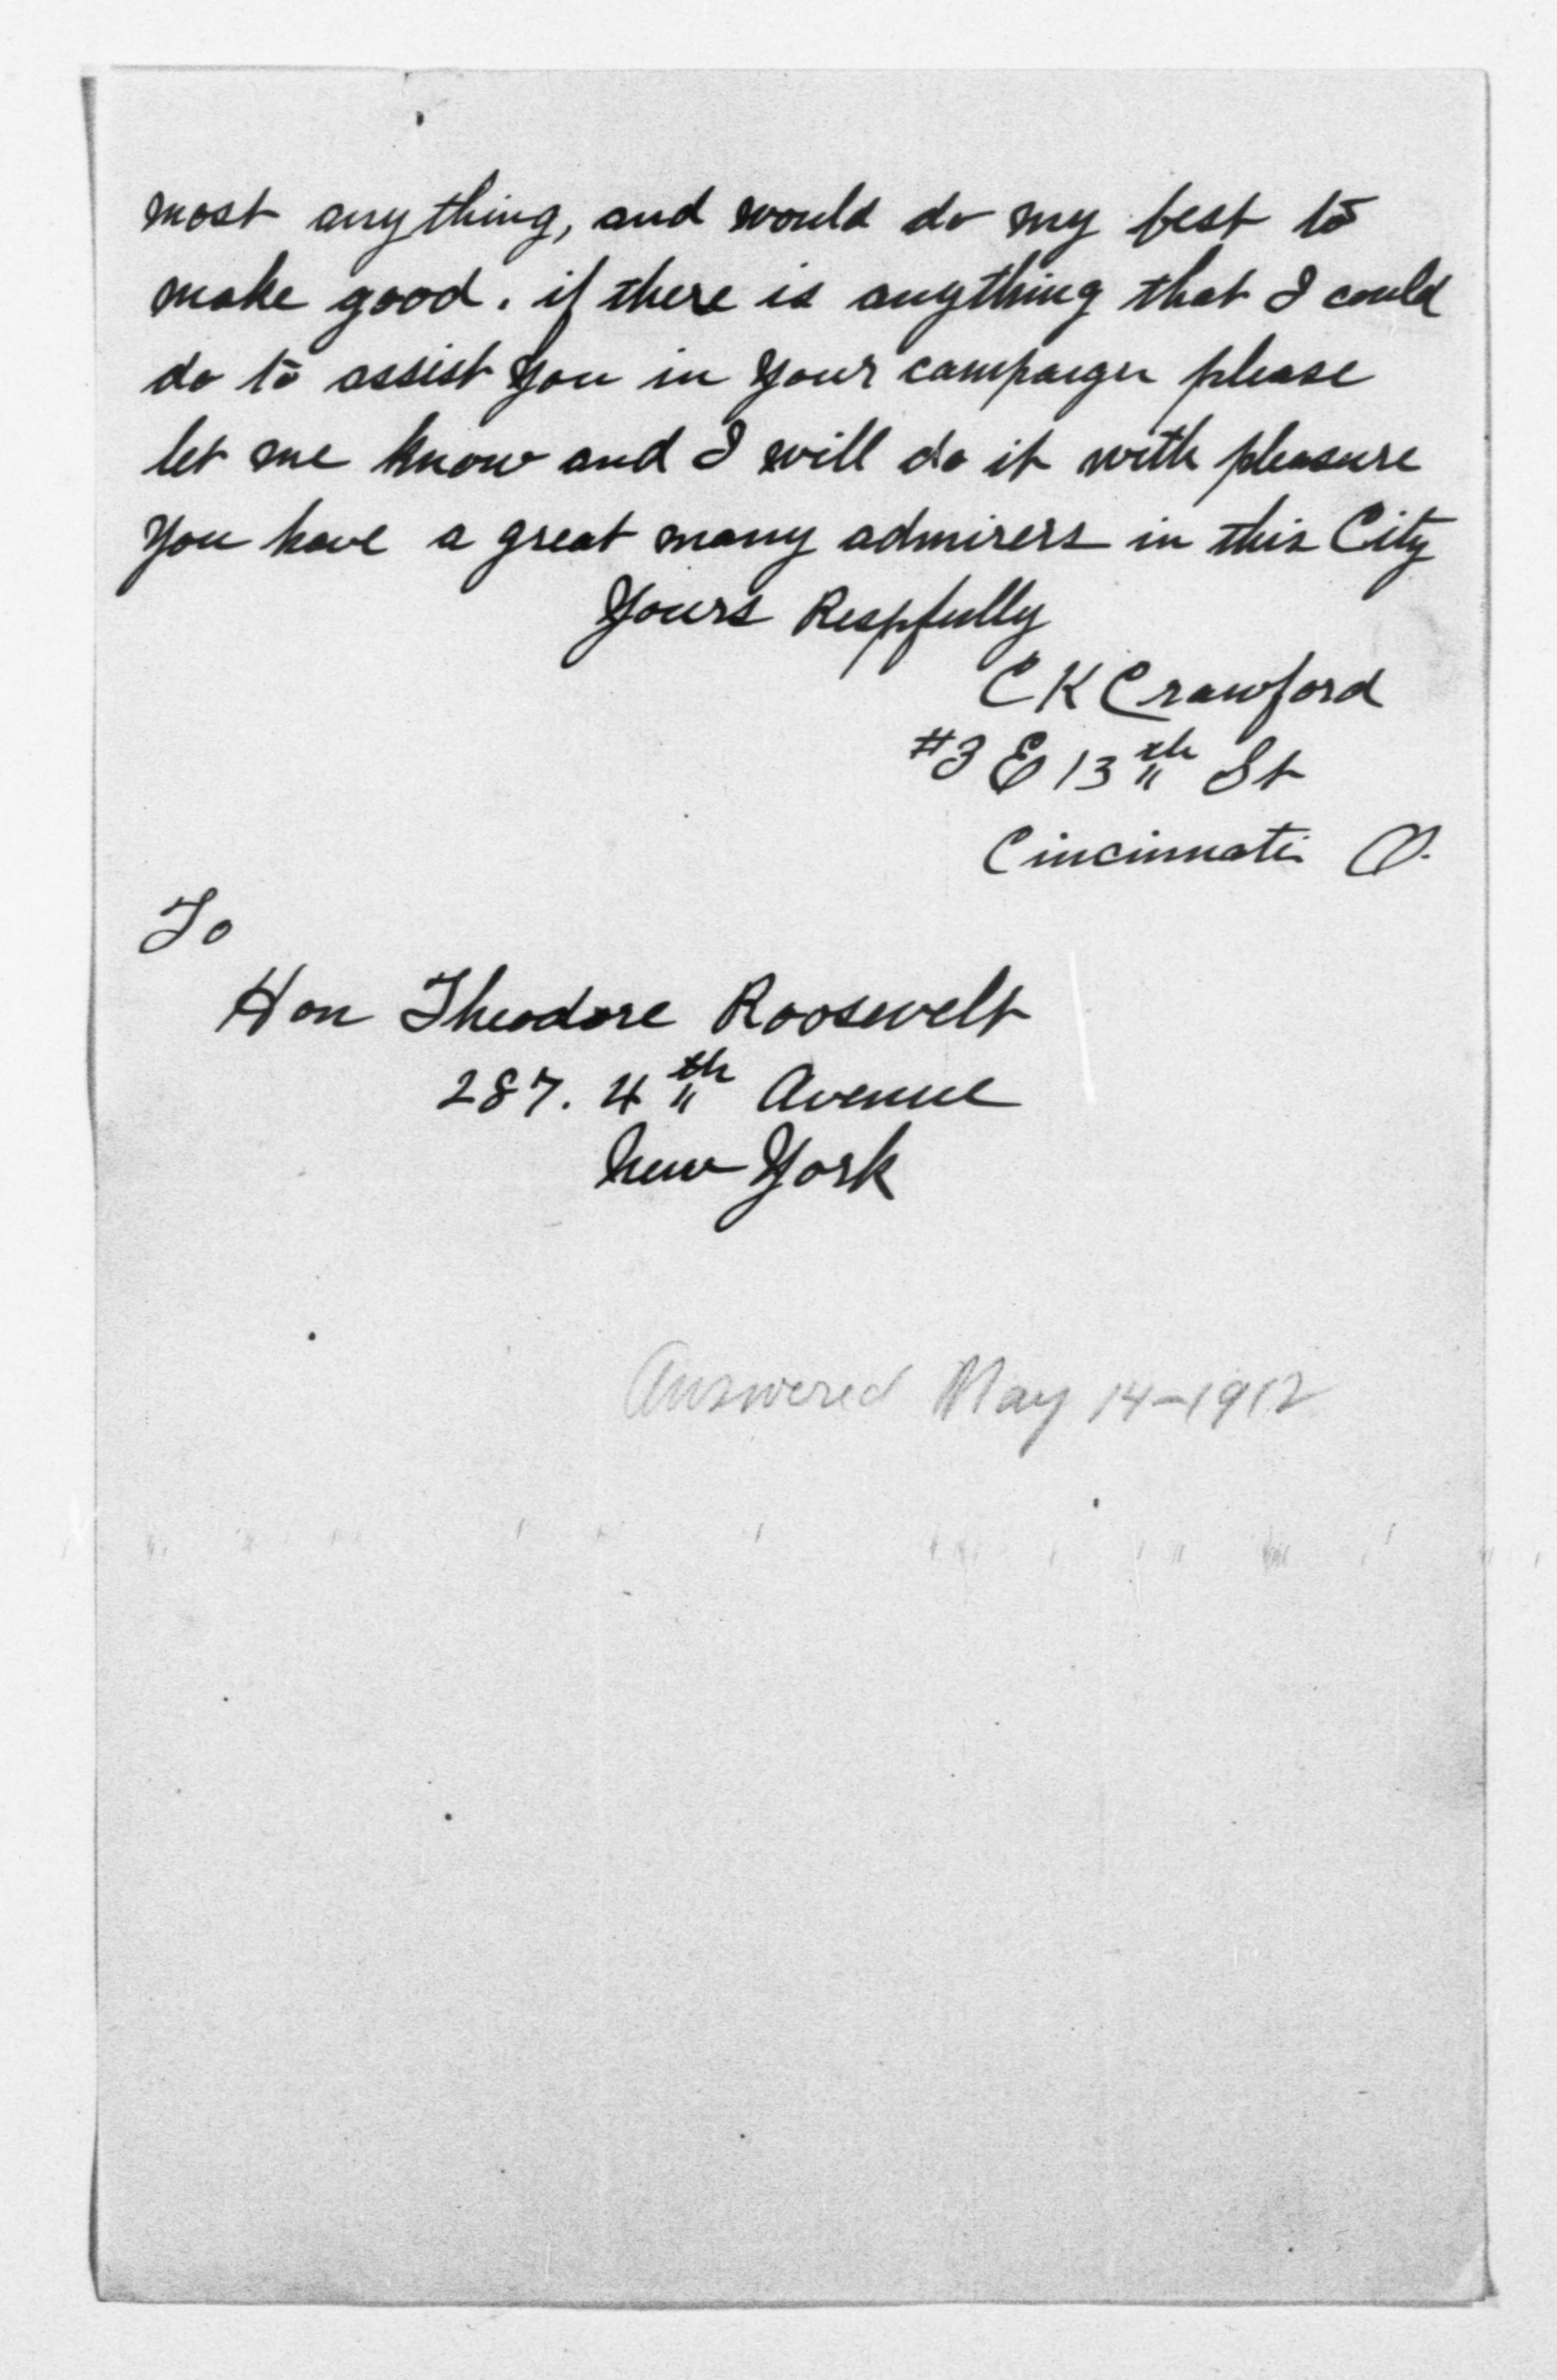 most anything, and would do my best to
make good. if there is anything that I could
do to assist you in your campaign please
let me know and I will do it with pleasure
You have a great many admirers in this City
Yours Respfully
C K Crawford
#3 E 13th St
Cincinnati O.
To
Hon Theodore Roosevelt
287. 4th Avenue
New York
Answered May 14-1912